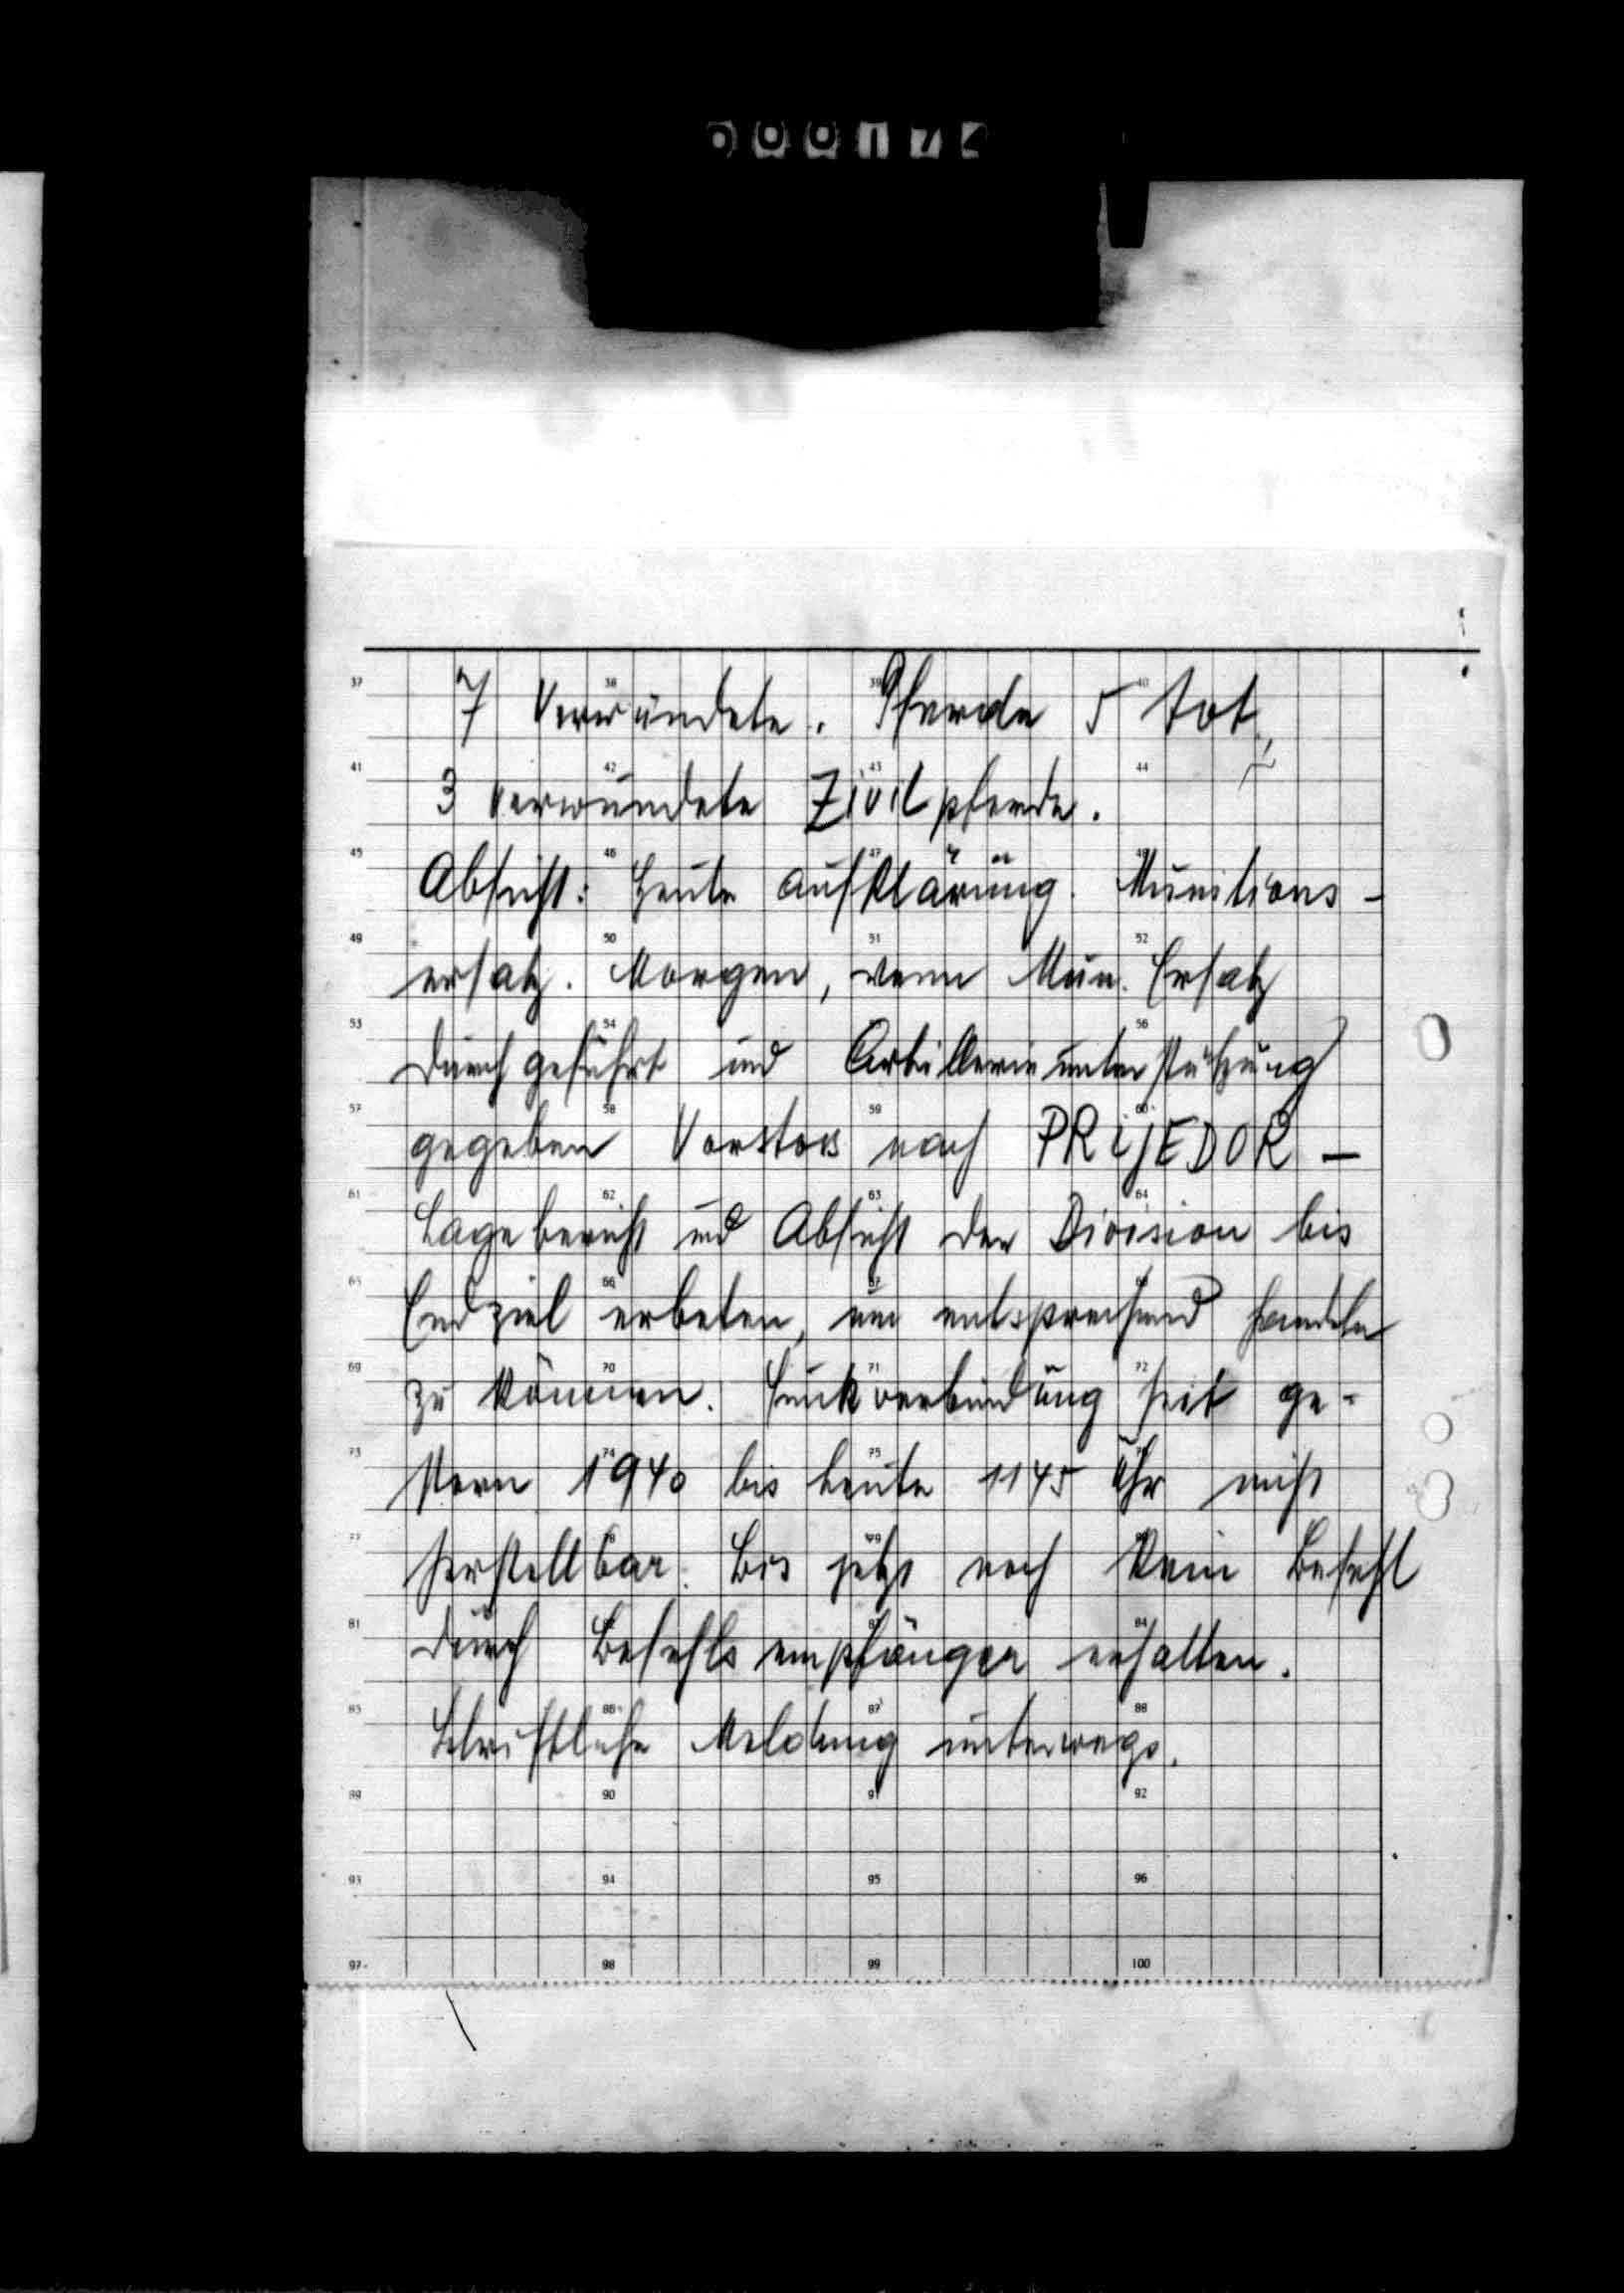 000172
37 38 39 40
7 Verwundete. Pferde 5 tot,
41 42 43 44
3 verwundete Zivilpferde.
45 46 47 48
Absicht: Heute Aufklärung. Munitions-
49 50 51 52
ersatz. Morgen, wenn Mun. Ersatz
53 54 56
durchgeführt und Artillerieunterstützung
57 58 59 60
gegeben Vorstoss nach PRIJEDOR —
61 62 63 64
Lagebericht und Absicht der Division bis
65 66 67 68
Endziel erbeten, um entsprechend handeln
69 70 71 72
zu können. Funkverbindung seit ge-
73 74 75 76
stern 1940 bis heute 1145 Uhr nicht
77 78 79 80
herstellbar. Bis jetzt noch kein Befehl
81 82 83 84
durch Befehlsempfänger erhalten.
85 86 87 88
Schriftliche Meldung unterwegs.
89 90 91 92
93 94 95 96
97 98 99 100